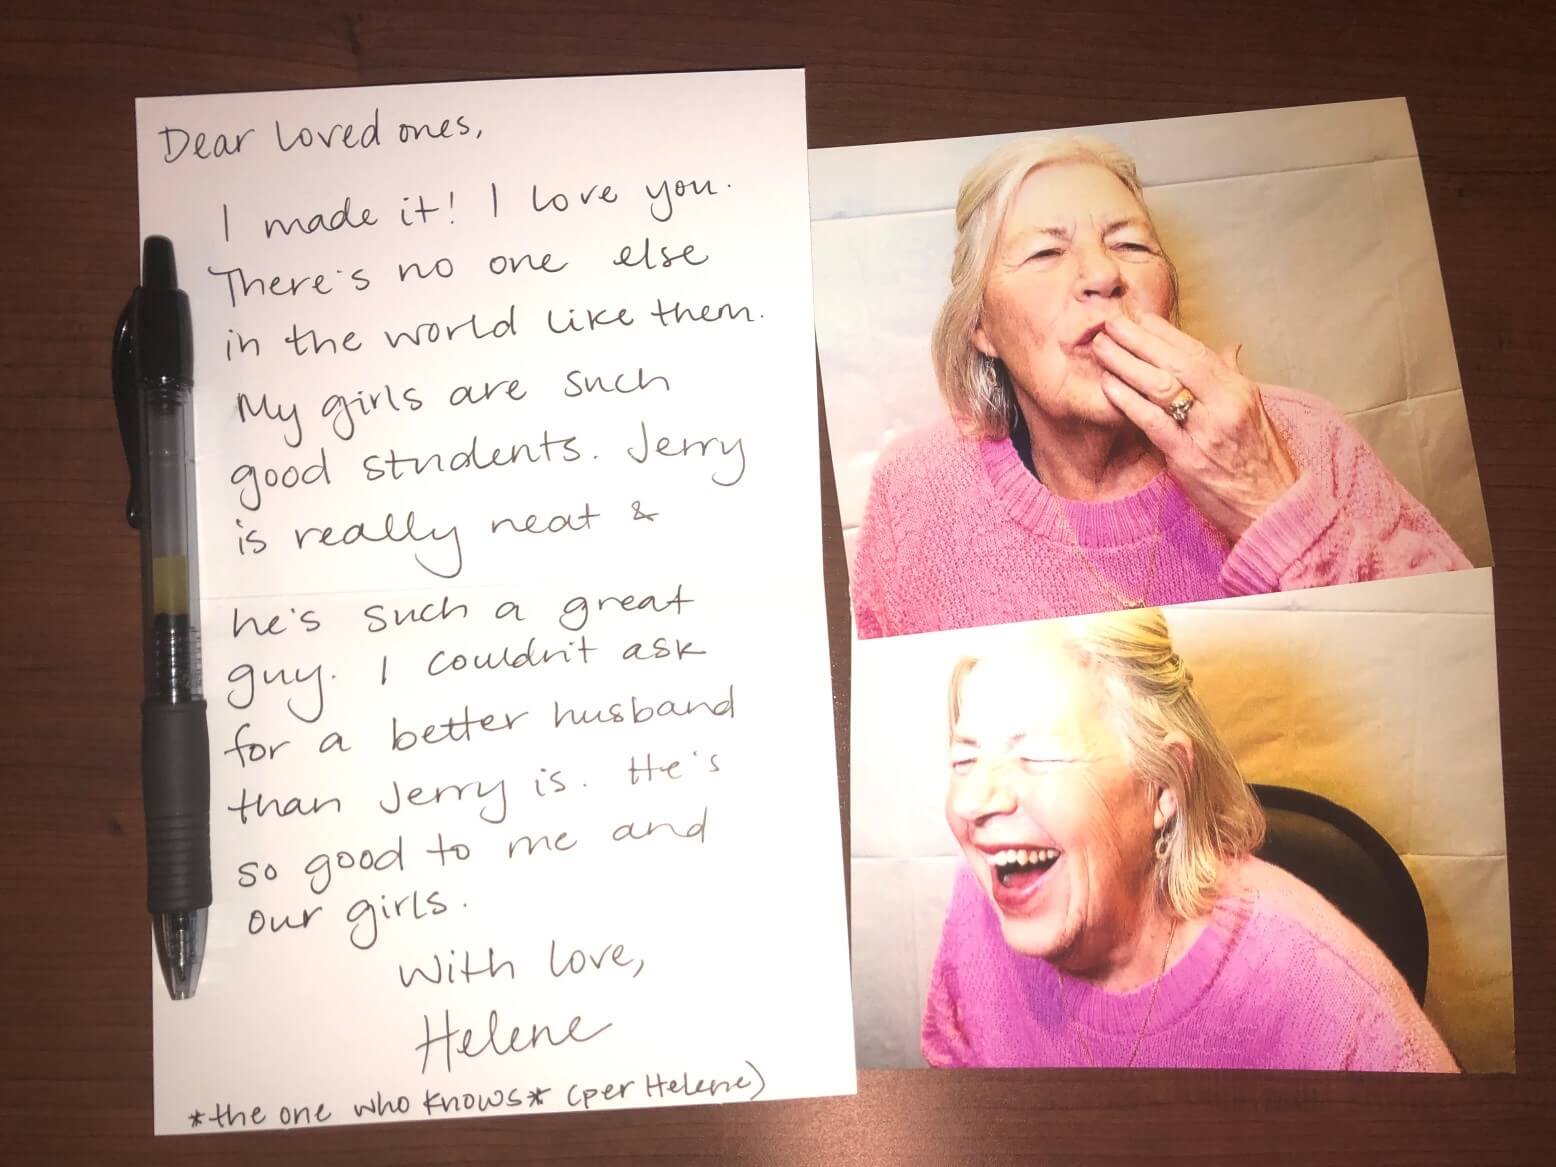 Dear Loved ones,
I made it! I love you.
There's no one else
in the world like them.
My girls are such
good students. Jerry
is really neat &
he's such a great
guy. I couldn't ask
for a better husband
than Jerry is. He's
so good to me and
our girls.
With love,
Helene
*the one who knows* (per Helene)